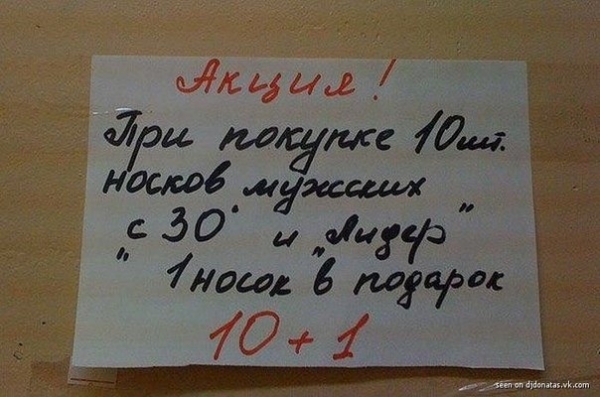 Акция!
При покупке 10 шт.
носков мужских
с 30° и „Лидер"
" 1 носок " в подарок
10 + 1
seen on djdonatas.vk.com